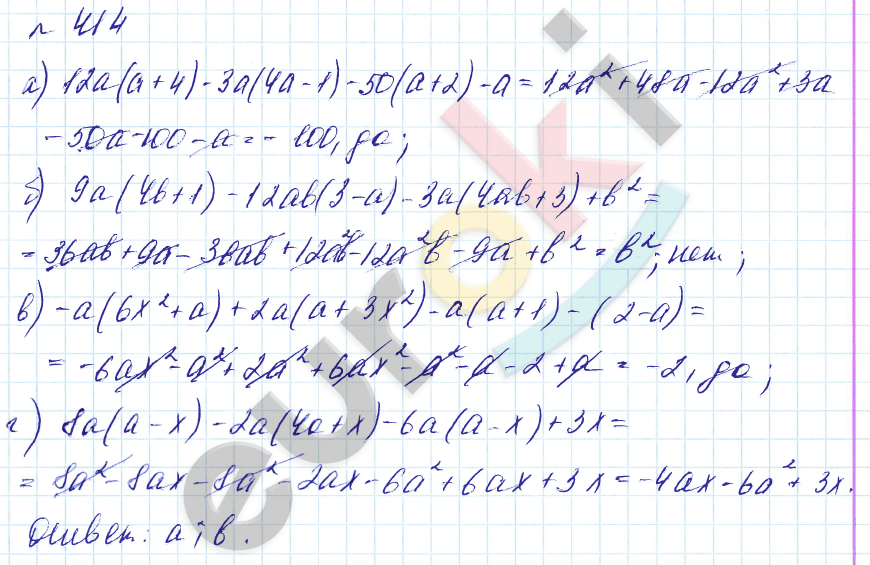 № 414
а) 12a(a+4) - 3a(4a-1) - 50(a+2) - a = 12a² + 48a - 12a² + 3a
- 50a - 100 - a = - 100, да;
б) 9a(4b+1) - 12ab(3-a) - 3a(4ab+3) + b² =
= 36ab + 9a - 36ab + 12a²b - 12a²b - 9a + b² = b²; нет;
в) -a(6x²+a) + 2a(a+3x²) - a(a+1) - (2-a) =
= -6ax² - a² + 2a² + 6ax² - a² - a - 2 + a = -2, да;
г) 8a(a-x) - 2a(4a+x) - 6a(a-x) + 3x =
= 8a² - 8ax - 8a² - 2ax - 6a² + 6ax + 3x = -4ax - 6a² + 3x.
Ответ: а; в.
euroki